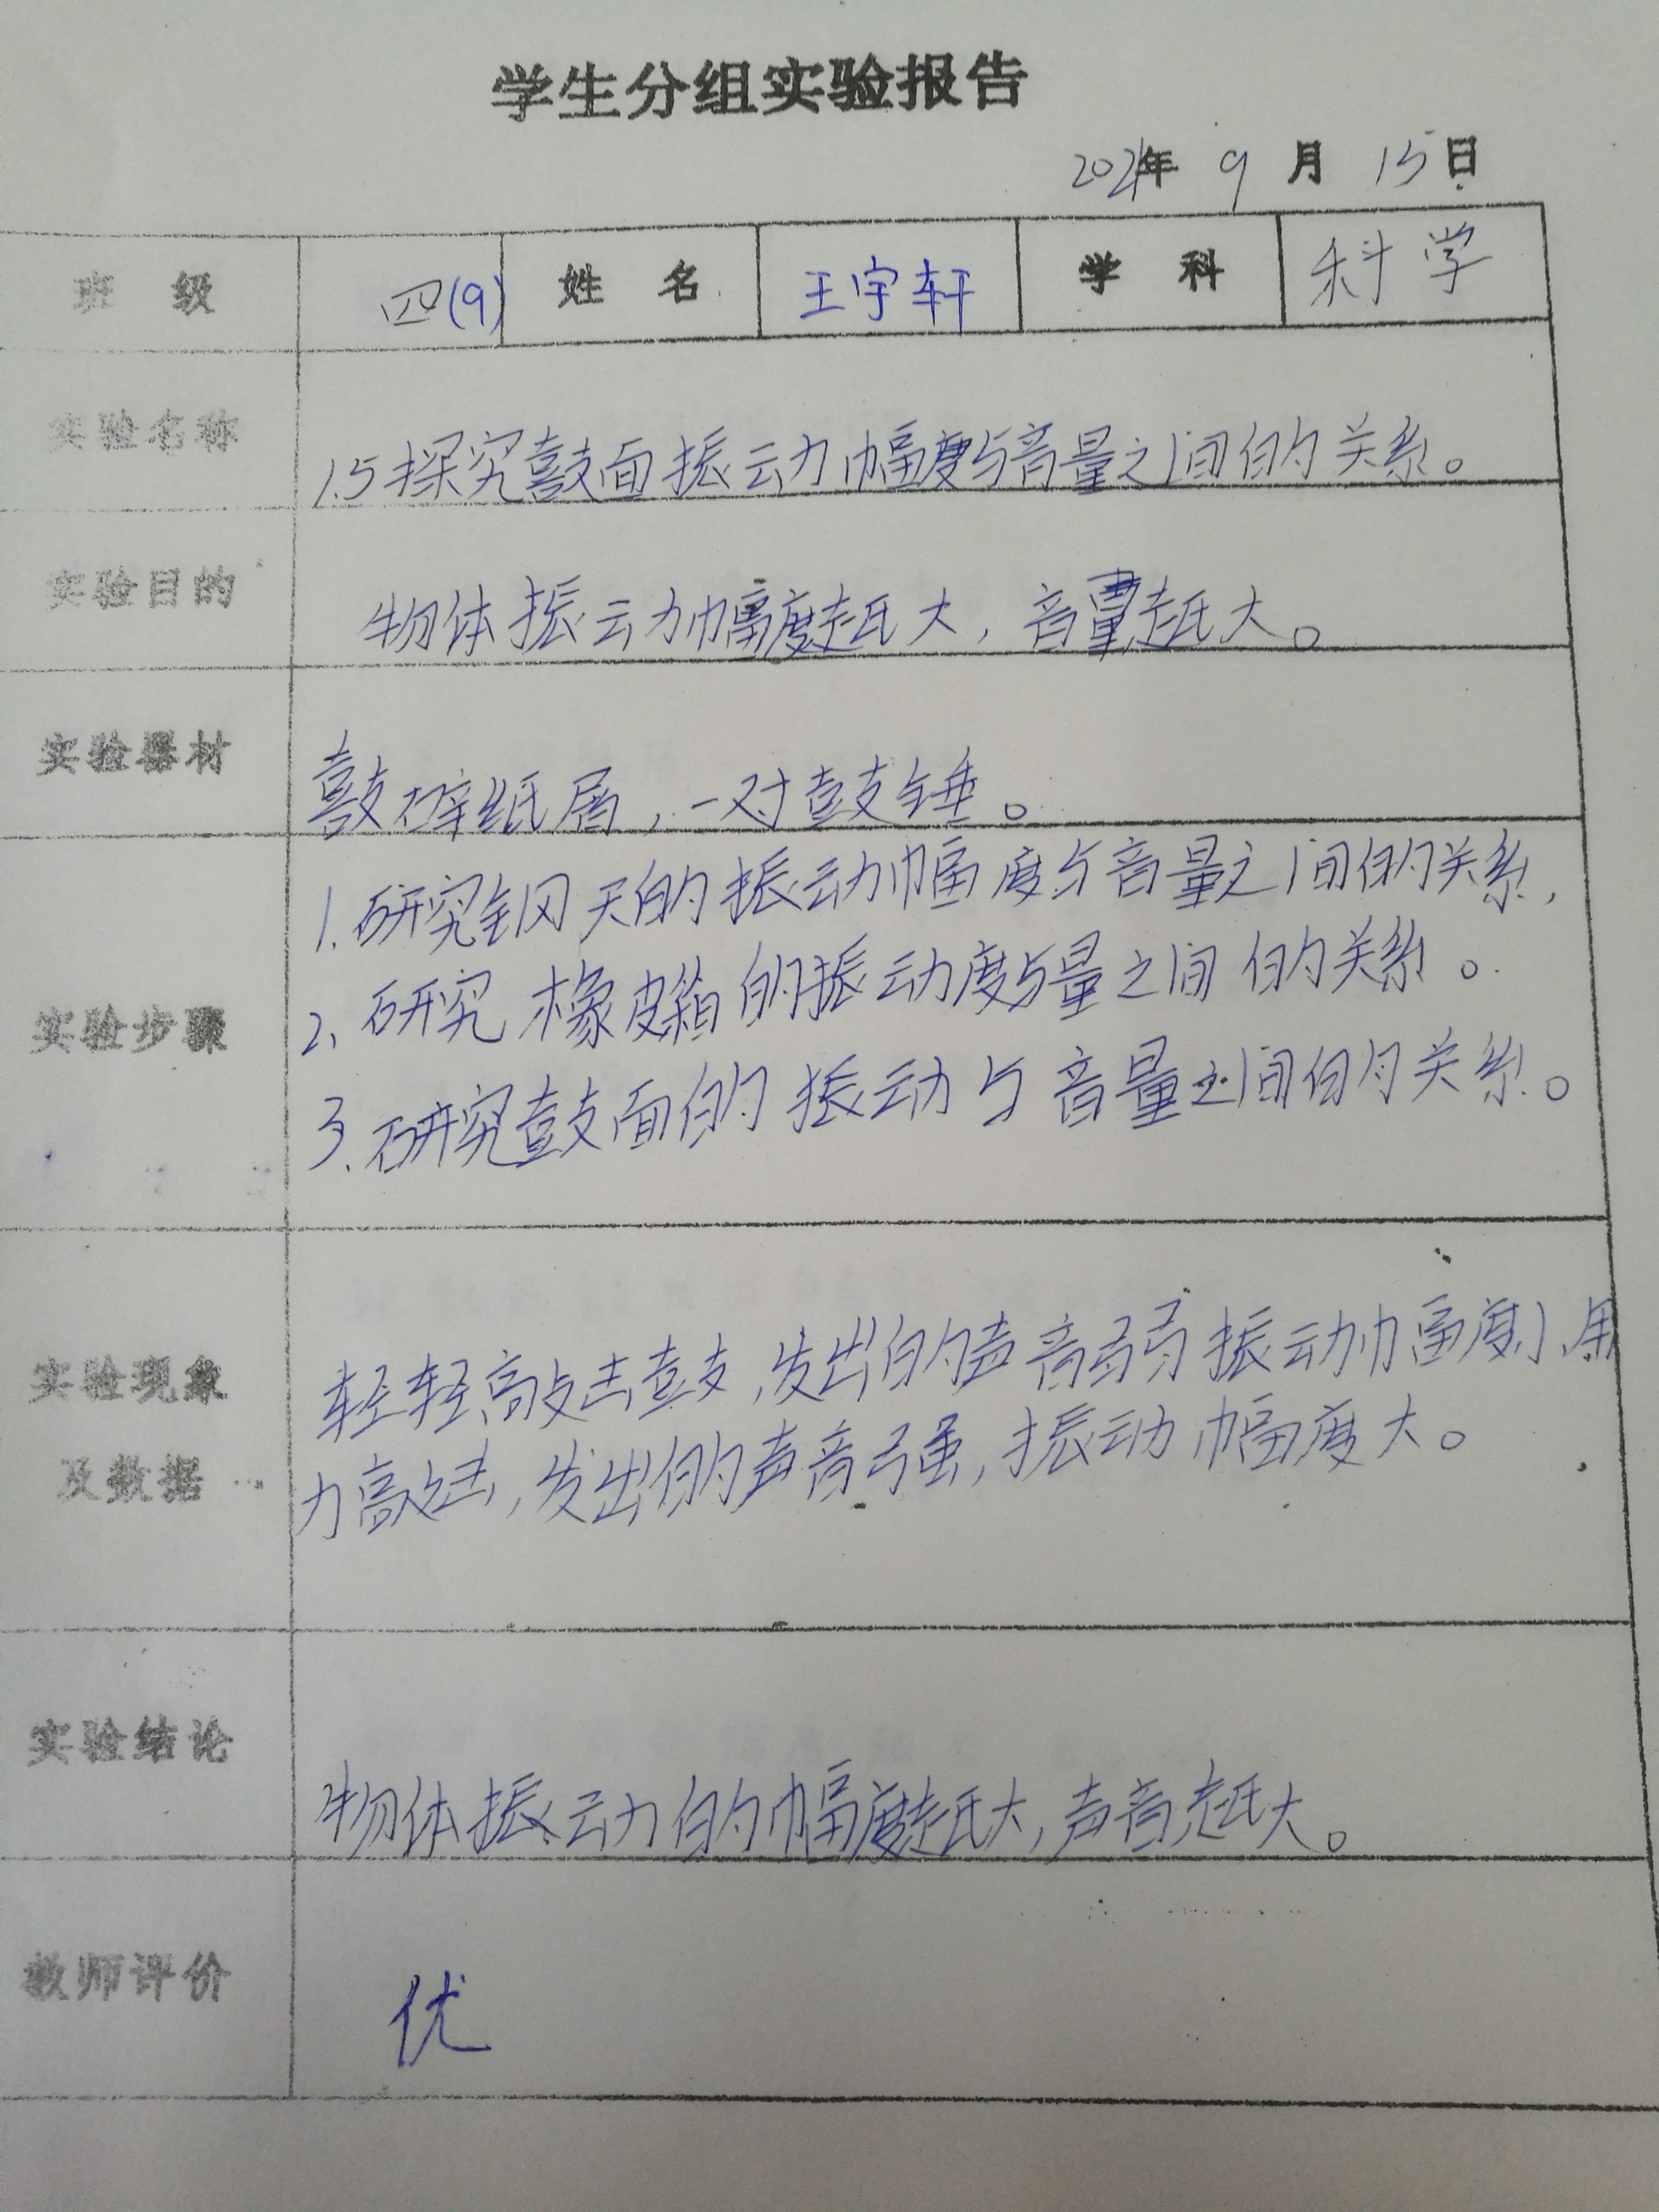 学生分组实验报告
2021年 9 月 15日
班 级 四(9) 姓 名 王宇轩 学 科 科学
实验名称 1.5探究鼓面振动幅度与音量之间的关系。
实验目的 物体振动幅度越大,音量越大。
实验器材 鼓碎纸屑,一对鼓锤。
1.研究钢天的振动幅度与音量之间的关系,
2.研究橡皮箱的振动度与量之间的关系。
实验步骤
3.研究鼓面的振动与音量之间的关系。
实验现象 轻轻敲击鼓,发出的声音弱振动幅度小,用
及数据 力敲击,发出的声音强,振动幅度大。
实验结论 物体振动的幅度越大,声音越大。
教师评价 优